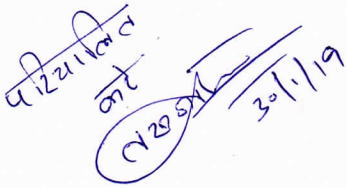 परिचालित
करें
30/1/19